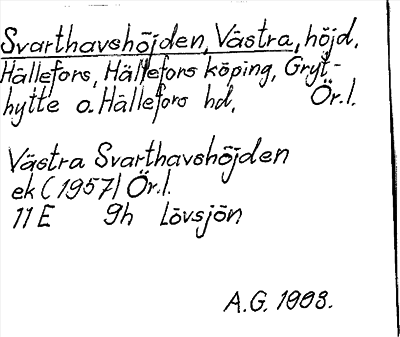 Svarthavshöjden, Västra, höjd,
Hällefors, Hällefors köping, Gryt-
hytte o. Hällefors hd, Ör.l.
Västra Svarthavshöjden
ek (1957) Ör.l.
11 E 9h Lövsjön
A.G.